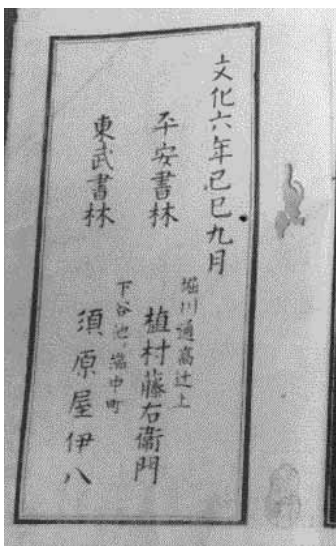 文化六年己巳九月
平安書林
堀川通高辻上
植村藤右衛門
東武書林
下谷池ノ端中町
須原屋伊八